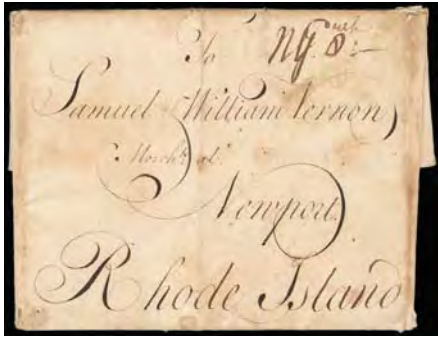 To NY. 8:
Samuel & William Vernon
Merchts at
Newport
Rhode Island